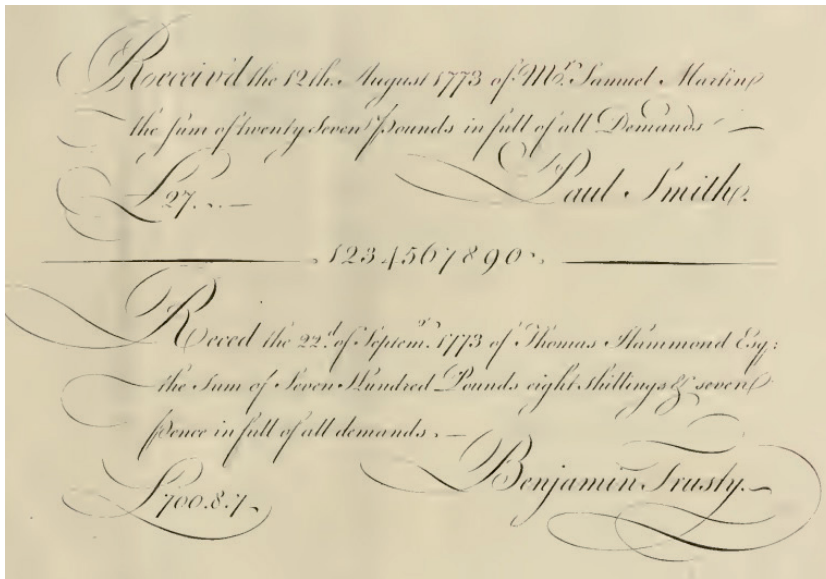 Receiv'd the 12th. August 1773 of Mr. Samuel Martin
the sum of twenty Seven Pounds in full of all Demands —
£27. . . —
Paul Smith.
1234567890
Reced the 22d. of Septemr. 1773 of Thomas Hammond Esq:
the Sum of Seven Hundred Pounds eight shillings & seven
pence in full of all demands . —
£700.8.7
Benjamin Trusty. —